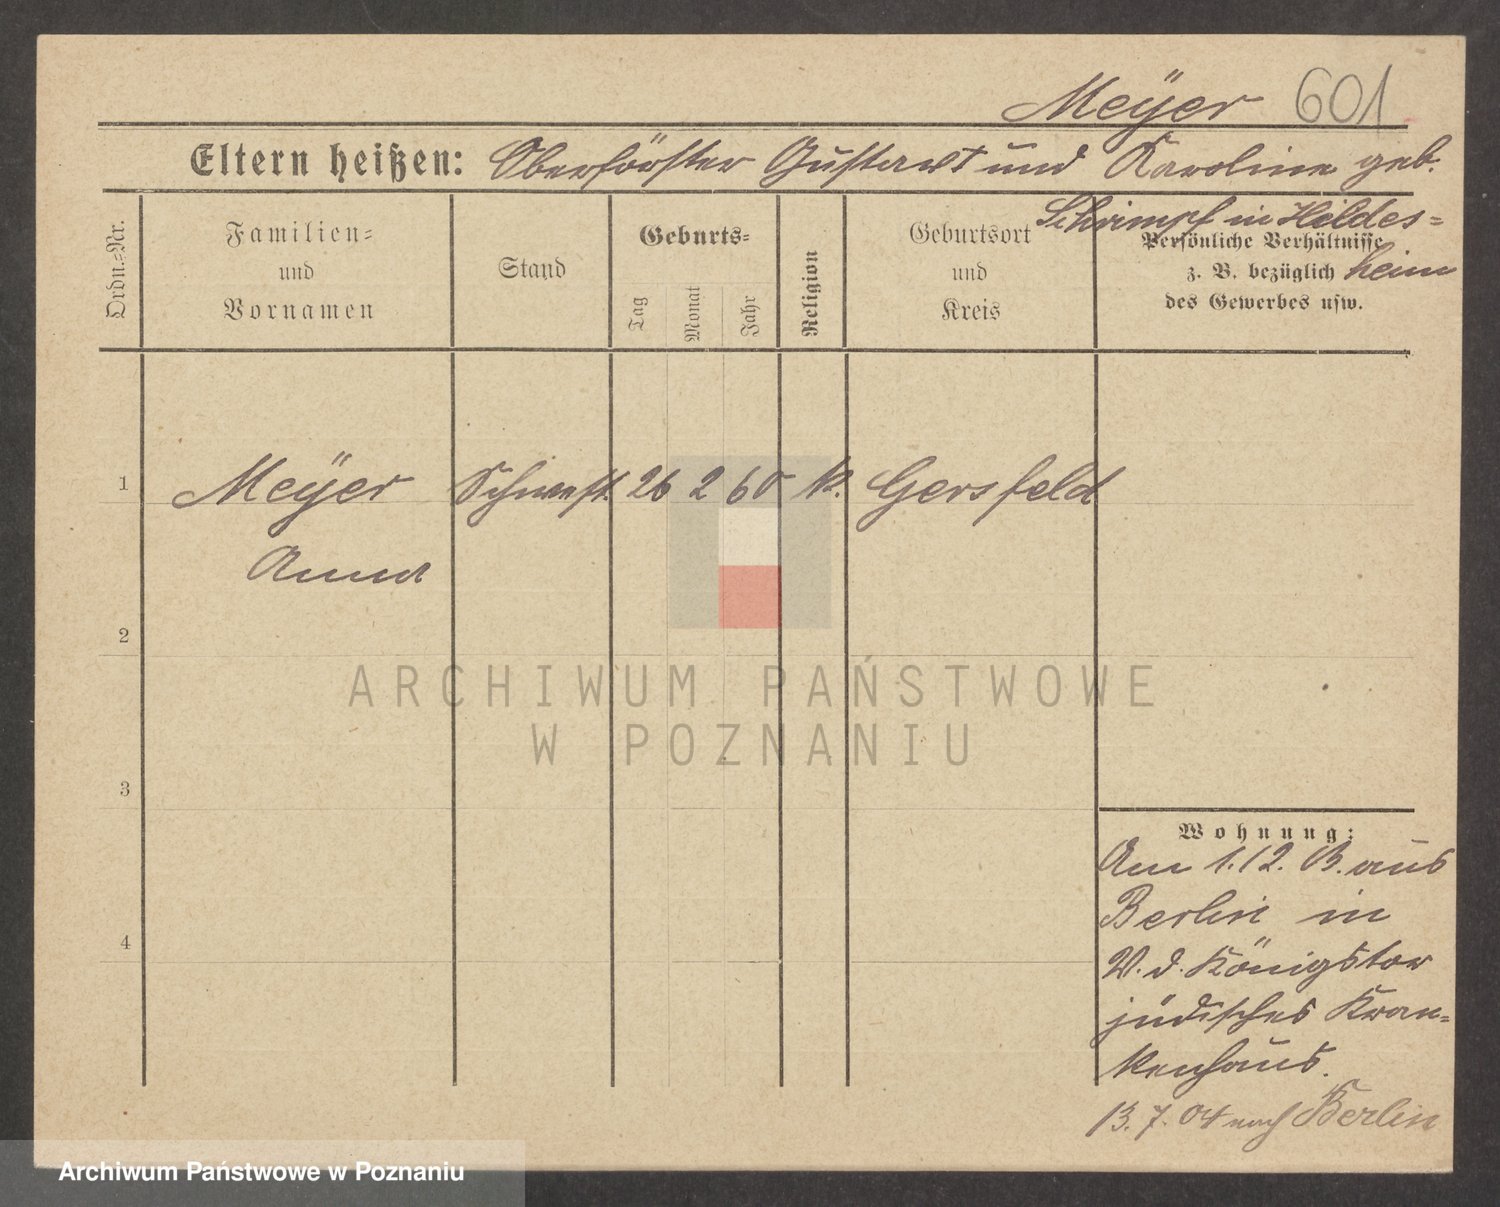 Meÿer 601
Eltern heißen: Oberförster Gustav und Karoline geb.
Schrimpf in Hildes=
heim
Ordn.=Nr.
Familien=
und
Vornamen
Stand
Geburts=
Tag
Monat
Jahr
Religion
Geburtsort
und
Kreis
Persönliche Verhältnisse
z. B. bezüglich
des Gewerbes usw.
1 Meÿer Schwest. 26 2 60 k. Gersfeld
Anna
2
3
4
Wohnung:
Am 1.12. 03. aus
Berlin in
V. d. Königstor
jüdisches Kran=
kenhaus.
13. 7. 04 nach Berlin
ARCHIWUM PAŃSTWOWE
W POZNANIU
Archiwum Państwowe w Poznaniu